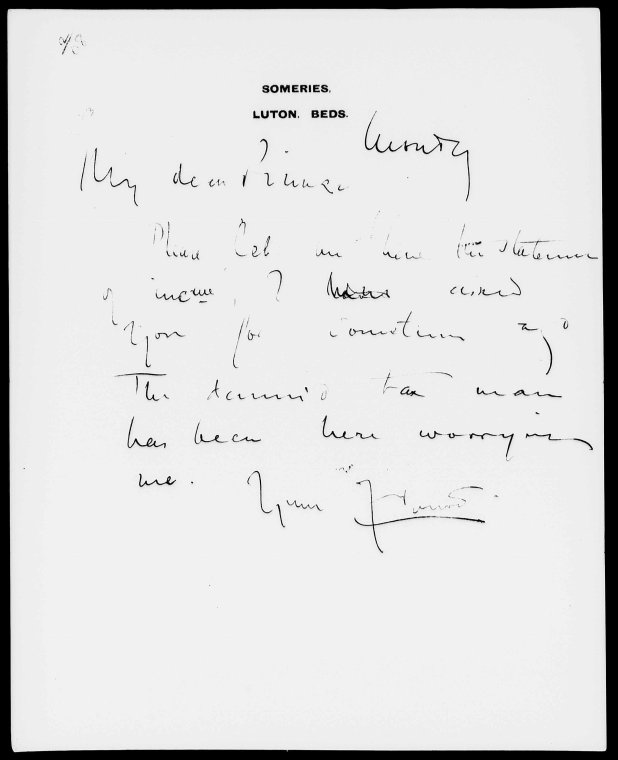 SOMERIES.
LUTON. BEDS.
Monday
My dear Prince
Please let me have the statement
of income, I asked
you for sometime ago
The damned tax man
has been here worrying
me.
Yours